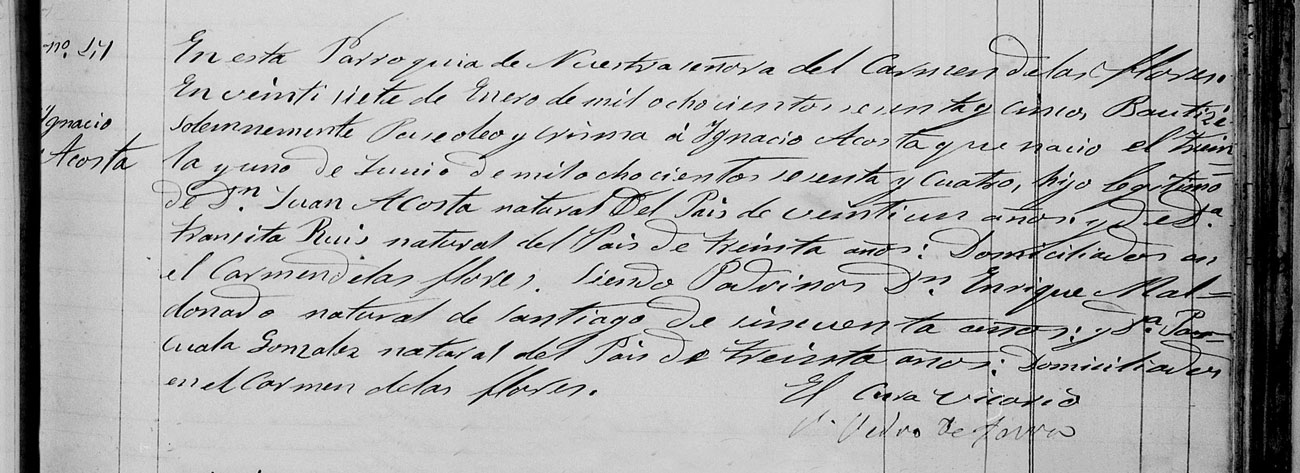 nº. 
Ignacio
Acosta
En esta Parroquia de Nuestra señora del Carmen de las flores.
En veinti siete de Enero de mil ochocientos secenta y cinco, Bautizé
solemnemente Puse oleo y crisma á Ignacio Acosta que nacio el trein
ta y uno de Junio de mil ochocientos secenta y cuatro, hijo legitimo
de Dn. Juan Acosta natural Del Pais de veintiun años: y de Da.
transita Ruis natural del Pais de treinta años: Domiciliados en
el Carmen de las flores. Siendo Padrinos Dn. Enrique Mal-
donado natural de Santiago de cincuenta años: y Da. Pas-
cuala Gonzalez natural del Pais de treinta años: Domiciliados
en el Carmen de las flores.
El Cura Vicario
Pedro de